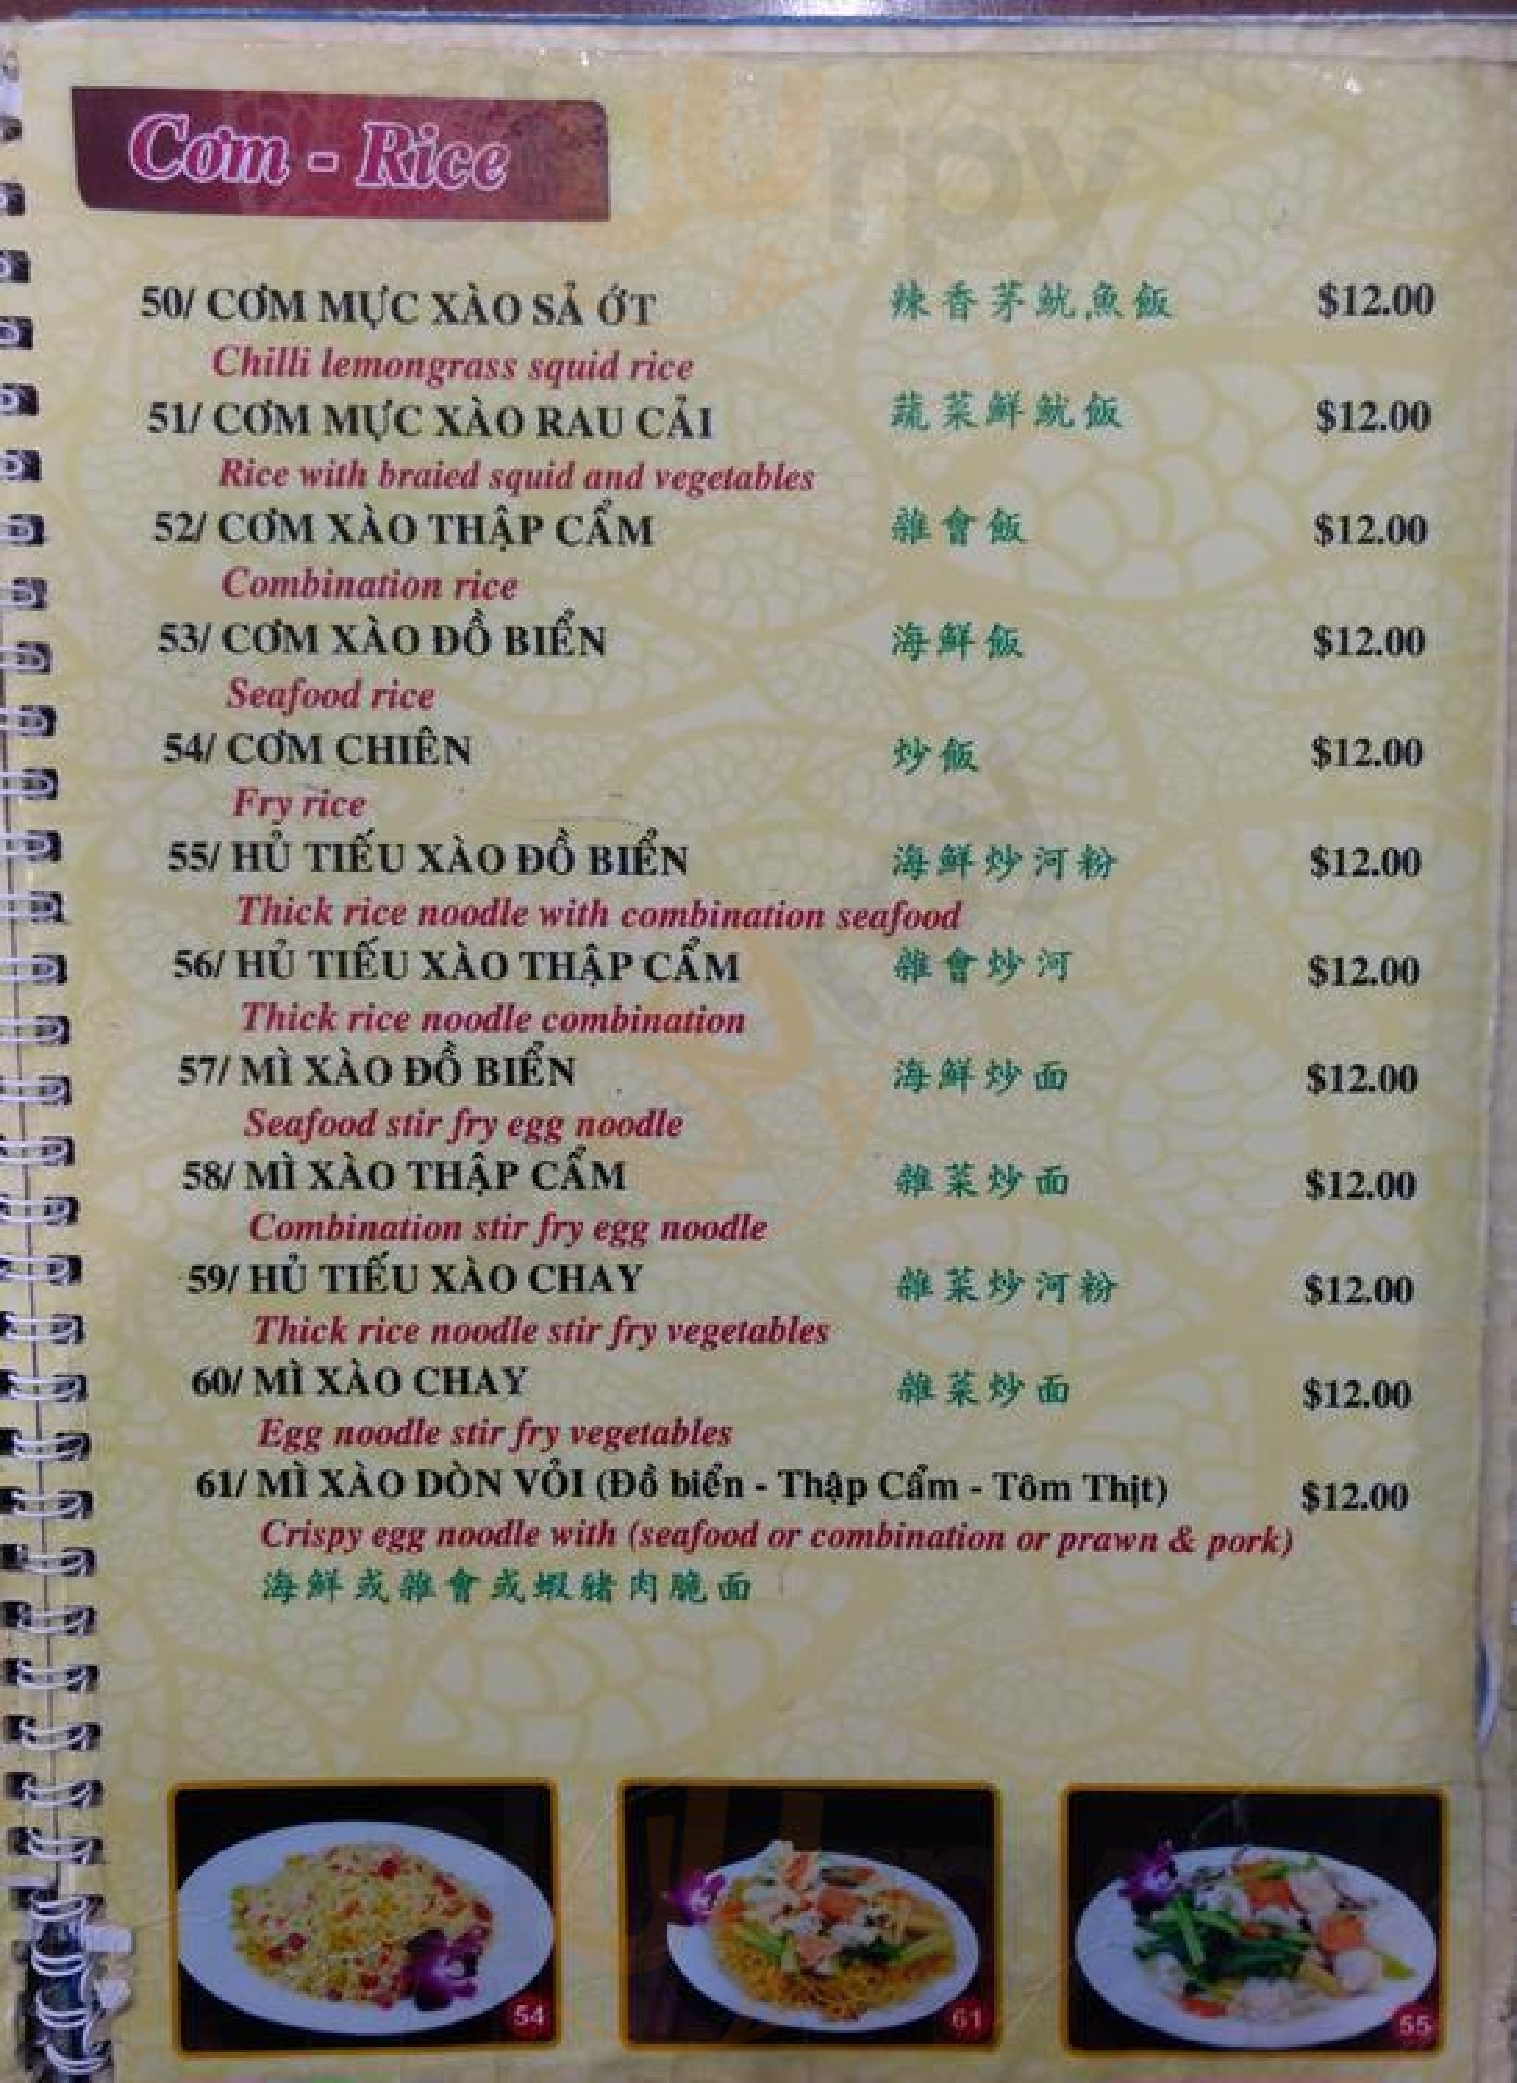 Cơm - Rice
50/ CƠM MỰC XÀO SẢ ỚT 辣香茅魷魚飯 $12.00
Chilli lemongrass squid rice
51/ CƠM MỰC XÀO RAU CẢI 蔬菜鮮魷飯 $12.00
Rice with braied squid and vegetables
52/ CƠM XÀO THẬP CẨM 雜會飯 $12.00
Combination rice
53/ CƠM XÀO ĐỒ BIỂN 海鮮飯 $12.00
Seafood rice
54/ CƠM CHIÊN 炒飯 $12.00
Fry rice
55/ HỦ TIẾU XÀO ĐỒ BIỂN 海鮮炒河粉 $12.00
Thick rice noodle with combination seafood
56/ HỦ TIẾU XÀO THẬP CẨM 雜會炒河 $12.00
Thick rice noodle combination
57/ MÌ XÀO ĐỒ BIỂN 海鮮炒面 $12.00
Seafood stir fry egg noodle
58/ MÌ XÀO THẬP CẨM 雜菜炒面 $12.00
Combination stir fry egg noodle
59/ HỦ TIẾU XÀO CHAY 雜菜炒河粉 $12.00
Thick rice noodle stir fry vegetables
60/ MÌ XÀO CHAY 雜菜炒面 $12.00
Egg noodle stir fry vegetables
61/ MÌ XÀO DÒN VỎI (Đồ biển - Thập Cẩm - Tôm Thịt) $12.00
Crispy egg noodle with (seafood or combination or prawn & pork)
海鮮或雜會或蝦豬肉脆面
54 61 55